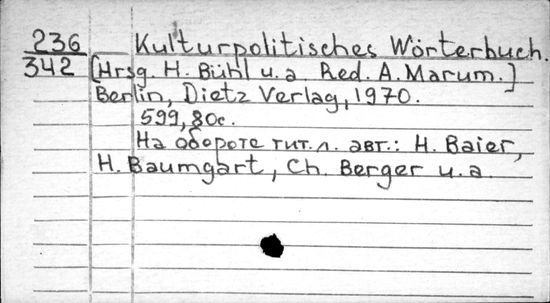 236 Kulturpolitisches Wörterbuch.
342 [Hrsg. H. Bühl u. a Red. A. Marum.]
Berlin, Dietz Verlag, 1970.
599, 80c.
На обороте тит. л. авт.: H. Baier,
H. Baumgart, Ch. Berger u. a.